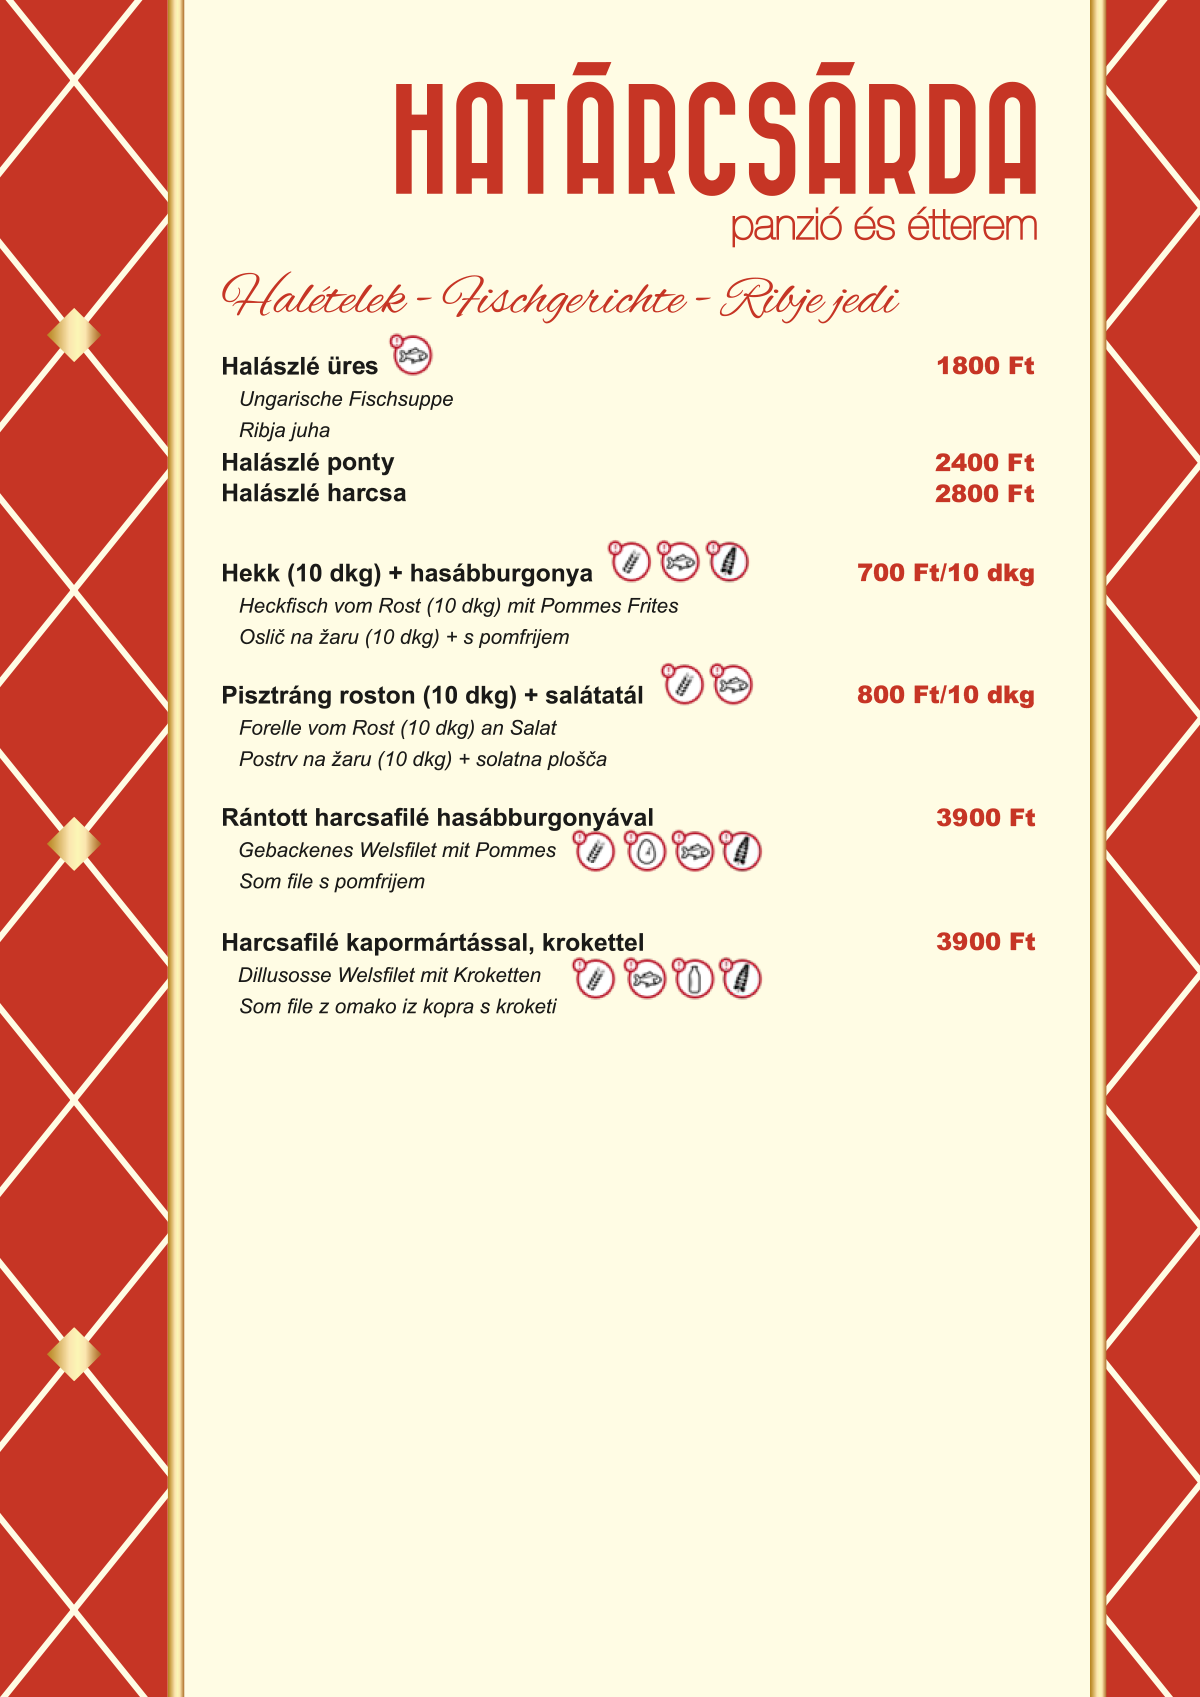 HATÁRCSÁRDA
panzió és étterem
Halételek - Fischgerichte - Ribje jedi
Halászlé üres 1800 Ft
Ungarische Fischsuppe
Ribja juha
Halászlé ponty 2400 Ft
Halászlé harcsa 2800 Ft
Hekk (10 dkg) + hasábburgonya 700 Ft/10 dkg
Heckfisch vom Rost (10 dkg) mit Pommes Frites
Oslič na žaru (10 dkg) + s pomfrijem
Pisztráng roston (10 dkg) + salátatál 800 Ft/10 dkg
Forelle vom Rost (10 dkg) an Salat
Postrv na žaru (10 dkg) + solatna plošča
Rántott harcsafilé hasábburgonyával 3900 Ft
Gebackenes Welsfilet mit Pommes
Som file s pomfrijem
Harcsafilé kapormártással, krokettel 3900 Ft
Dillusosse Welsfilet mit Kroketten
Som file z omako iz kopra s kroketi